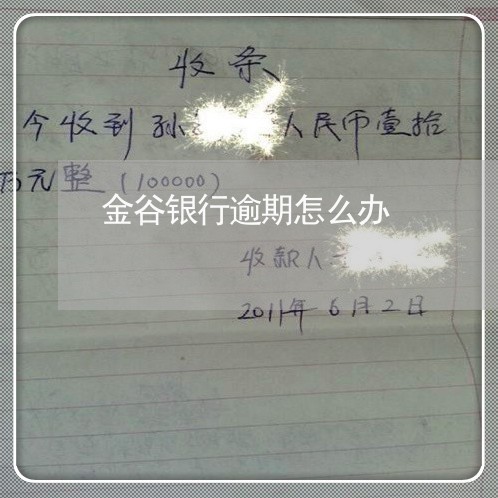 收条
今收到孙 人民币壹拾
万元整(100000)
金谷银行逾期怎么办
收款人
2011年6月2日